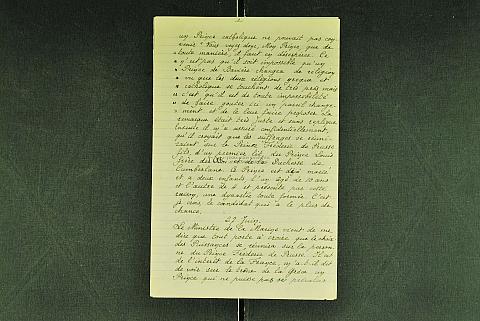 un Prince catholique ne pouvait pas con-
venir. Vous voyez donc, Mon Prince, que de
toute manière, il faut en désespérer. Ce
n'est pas qu'il soit impossible qu'un
Prince de Bavière changea de religion
vu que les deux religions grecque et
catholique se touchent de très près mais
c'est qu'il est de toute impossibilité
de faire gouter ici un pareil change-
ment et de le leur faire proposer. La
remarque était très juste et sans replique
Ensuite il m'a assuré confidentiellement,
qu'il croyait que les suffrages se réuni-
raient sur le Prince Fréderic de Prusse
fils, d'un premier lit, du Prince Louis
frère des et de la Duchesse de
Cumberland. Le Prince est déjà marié
et a deux enfants, l'un agé de 10 ans
et l'autre de 4 et présente par cette
raison, une dynastie toute formée. C'est
je crois, le candidat qui a le plus de
chance.
27 Juin.
Le Ministre de la Marine vient de me
dire que tout porte à croire que le choix
des Puissances se réunira sur la person-
ne du Prince Fréderic de Prusse. Il est
de l'intérêt de la France, m'a-t-il dit
de voir sur le trône de la Grèce un
Prince qui ne puisse pas se